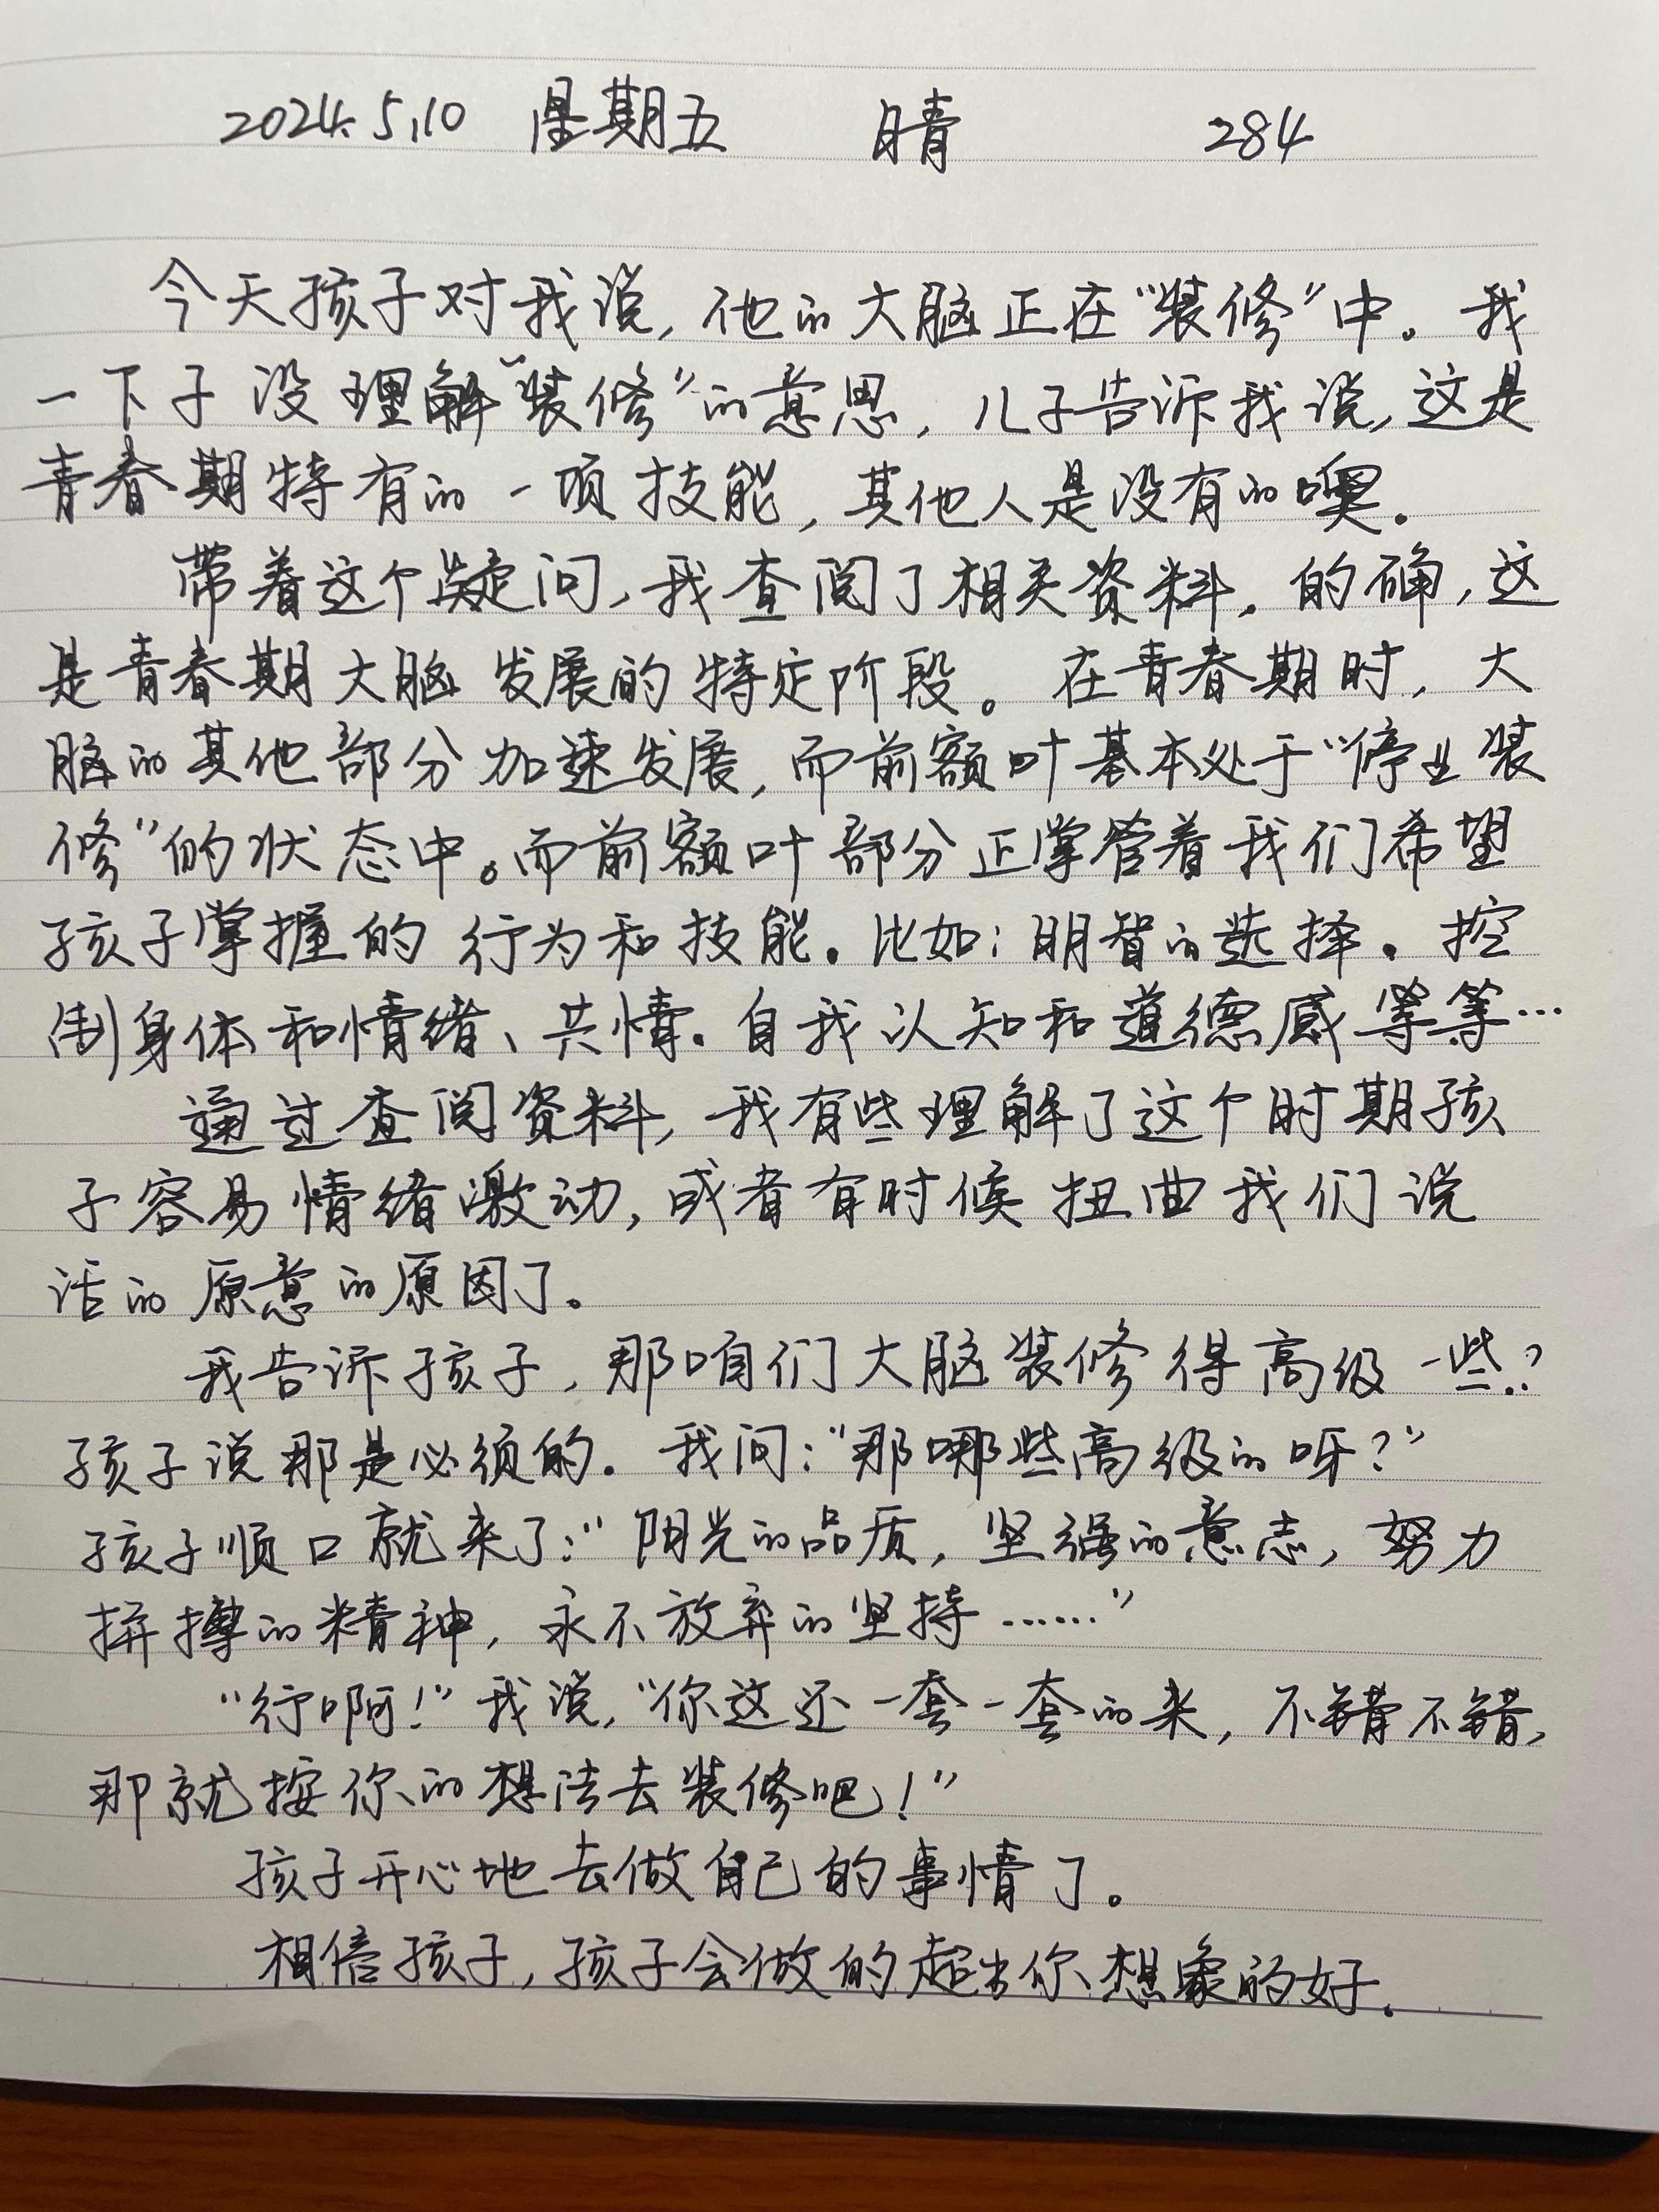 2024.5.10 星期五 晴 284
今天孩子对我说,他的大脑正在“装修”中。我
一下子没理解“装修”的意思,儿子告诉我说,这是
青春期特有的一项技能,其他人是没有的噢.
带着这个疑问,我查阅了相关资料.的确,这
是青春期大脑发展的特定阶段。在青春期时,大
脑的其他部分加速发展,而前额叶基本处于“停业装
修”的状态中。而前额叶部分正掌管着我们希望
孩子掌握的行为和技能.比如:明智的选择.控
制身体和情绪、共情.自我认知和道德感等等…
通过查阅资料,我有些理解了这个时期孩
子容易情绪激动,或者有时候扭曲我们说
话的原意的原因了。
我告诉孩子,那咱们大脑装修得高级一些?
孩子说那是必须的.我问:“那哪些高级的呀?”
孩子顺口就来了:“阳光的品质,坚强的意志,努力
拼搏的精神,永不放弃的坚持……”
“行啊!”我说,“你这还一套一套的来,不错不错,
那就按你的想法去装修吧!”
孩子开心地去做自己的事情了。
相信孩子,孩子会做的超出你想象的好.